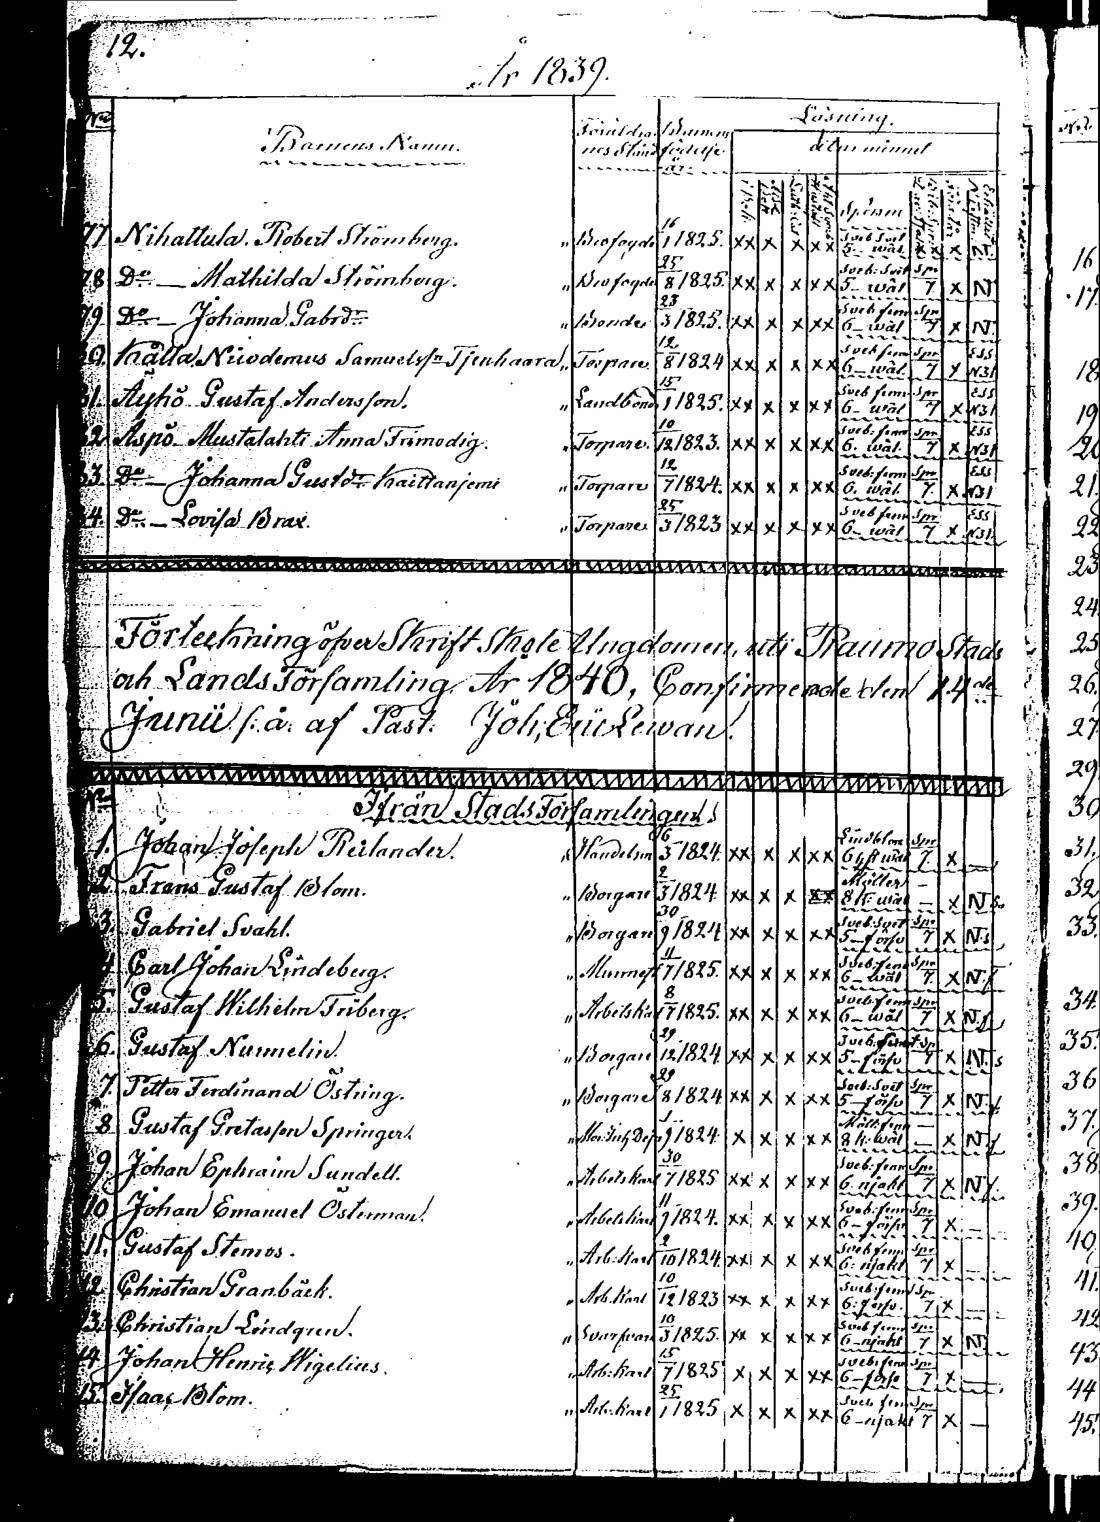 12.
År 1839.
No Barnens Namn. Föräldrarnes Stånd Barnens födelse år Läsning.
i Bok utur minnet
Spörsm
77 Nihattula. Robert Strömberg. " Brofogde 16/1 1825. xx x x xx Sveb: Svit 5- wäl x x N
78 Do — Mathilda Strömberg. " Brofogde 25/8 1825. xx x x xx Sveb: Svit 5- wäl Spr 7 x N
79 Do — Johanna Gabrdr " Bonde 23/3 1825. xx x x xx Sveb: finn 6- wäl Spr 7 x N.
80. Kålla Nicodemus Samuelsson Tjenhaara " Torpare 12/8 1824 xx x x xx Sveb finn 6- wäl Spr 7 x ESS N31
81. Äyhö Gustaf Andersson. " Landbonde 15/1 1825. xx x x xx Sveb finn 6- wäl Spr 7 x ESS N31
82. Aspö Mustalahti Anna Frimodig. " Torpare 10/12 1823. xx x x xx Sveb: finn 6. wäl Spr 7 x ESS N31
83. Do — Johanna Gustdr Kaittanjemi " Torpare 12/7 1824. xx x x xx Sveb: finn 6. wäl Spr 7. x ESS N31
84. Do — Lovisa Brax. " Torpare 25/3 1823 xx x x xx Sveb finn 6- wäl Spr 7 x ESS N31
Förteckning öfver Skrift Skole Ungdomen, uti Raumo Stads
och Lands Församling År 1840, Confirmerade den 14de
Junii s. å. af Past: Joh; Eric Lewan.
No Ifrån Stads Församlingen
1. Johan Joseph Reilander. " Handelsm 16/3 1824. xx x x xx Lindblom 6 st wäl Spr 7. x —
2 Frans Gustaf Blom. " Borgare 2/3 1824 xx x x xx Möller 8 K: wäl — x N.
3. Gabriel Svahl. " Borgare 30/9 1824 xx x x xx Sveb: Svit 5- försv Spr 7 x N.s
4 Carl Johan Lindeberg. " Murmest 11/7 1825. xx x x xx Sveb: finn 6- wäl Spr 7. x N.f
5. Gustaf Wilhelm Friberg. " Arbetska 8/7 1825. xx x x xx Sveb: finn 6- wäl Spr 7 x N.f
6 Gustaf Nummelin. " Borgare 29/12 1824 xx x x xx Sveb: 5- försv Spr 7 x N.s
7. Petter Ferdinand Östring. " Borgare 29/8 1824 xx x x xx Sveb: Svit 5- försv Spr 7 x N.f
8 Gustaf Gretasson Springer. " 1/9 1824. x x x xx Möll: finn 8 k: wäl — x N.f
9. Johan Ephraim Sundell. " Arbetskarl 30/7 1825 xx x x xx Sveb: finn 6. njakt Spr 7 x N.f
10 Johan Emanuel Österman. " Arbetskarl 11/9 1824. xx x x xx Sveb: finn 6- försv Spr 7 x —
11. Gustaf Stemos. " Arb: Karl 2/10 1824 xx x x xx Sveb finn 6: njakt Spr 7 x —
12 Christian Granbäck. " Arb. Karl 10/12 1823 xx x x xx Sveb: finn 6: försv. Spr 7 x —
13. Christian Lindgren. " Svarfvare 10/3 1825. xx x x xx Sveb finn 6- njakt Spr 7 x N.
14. Johan Henric Wigelius. " Arb: Karl 15/7 1825 x x x xx Sveb: finn 6- försv Spr 7 x —
15. Isaac Blom. " Arb: Karl 25/1 1825 x x x xx Sveb finn 6- njakt Spr 7 x —
No
16
17.
18
19
20
21.
22
23
24.
25
26.
27
29
30
31.
32
33.
34.
35.
36
37.
38
39.
40
41.
42
43
44
45.